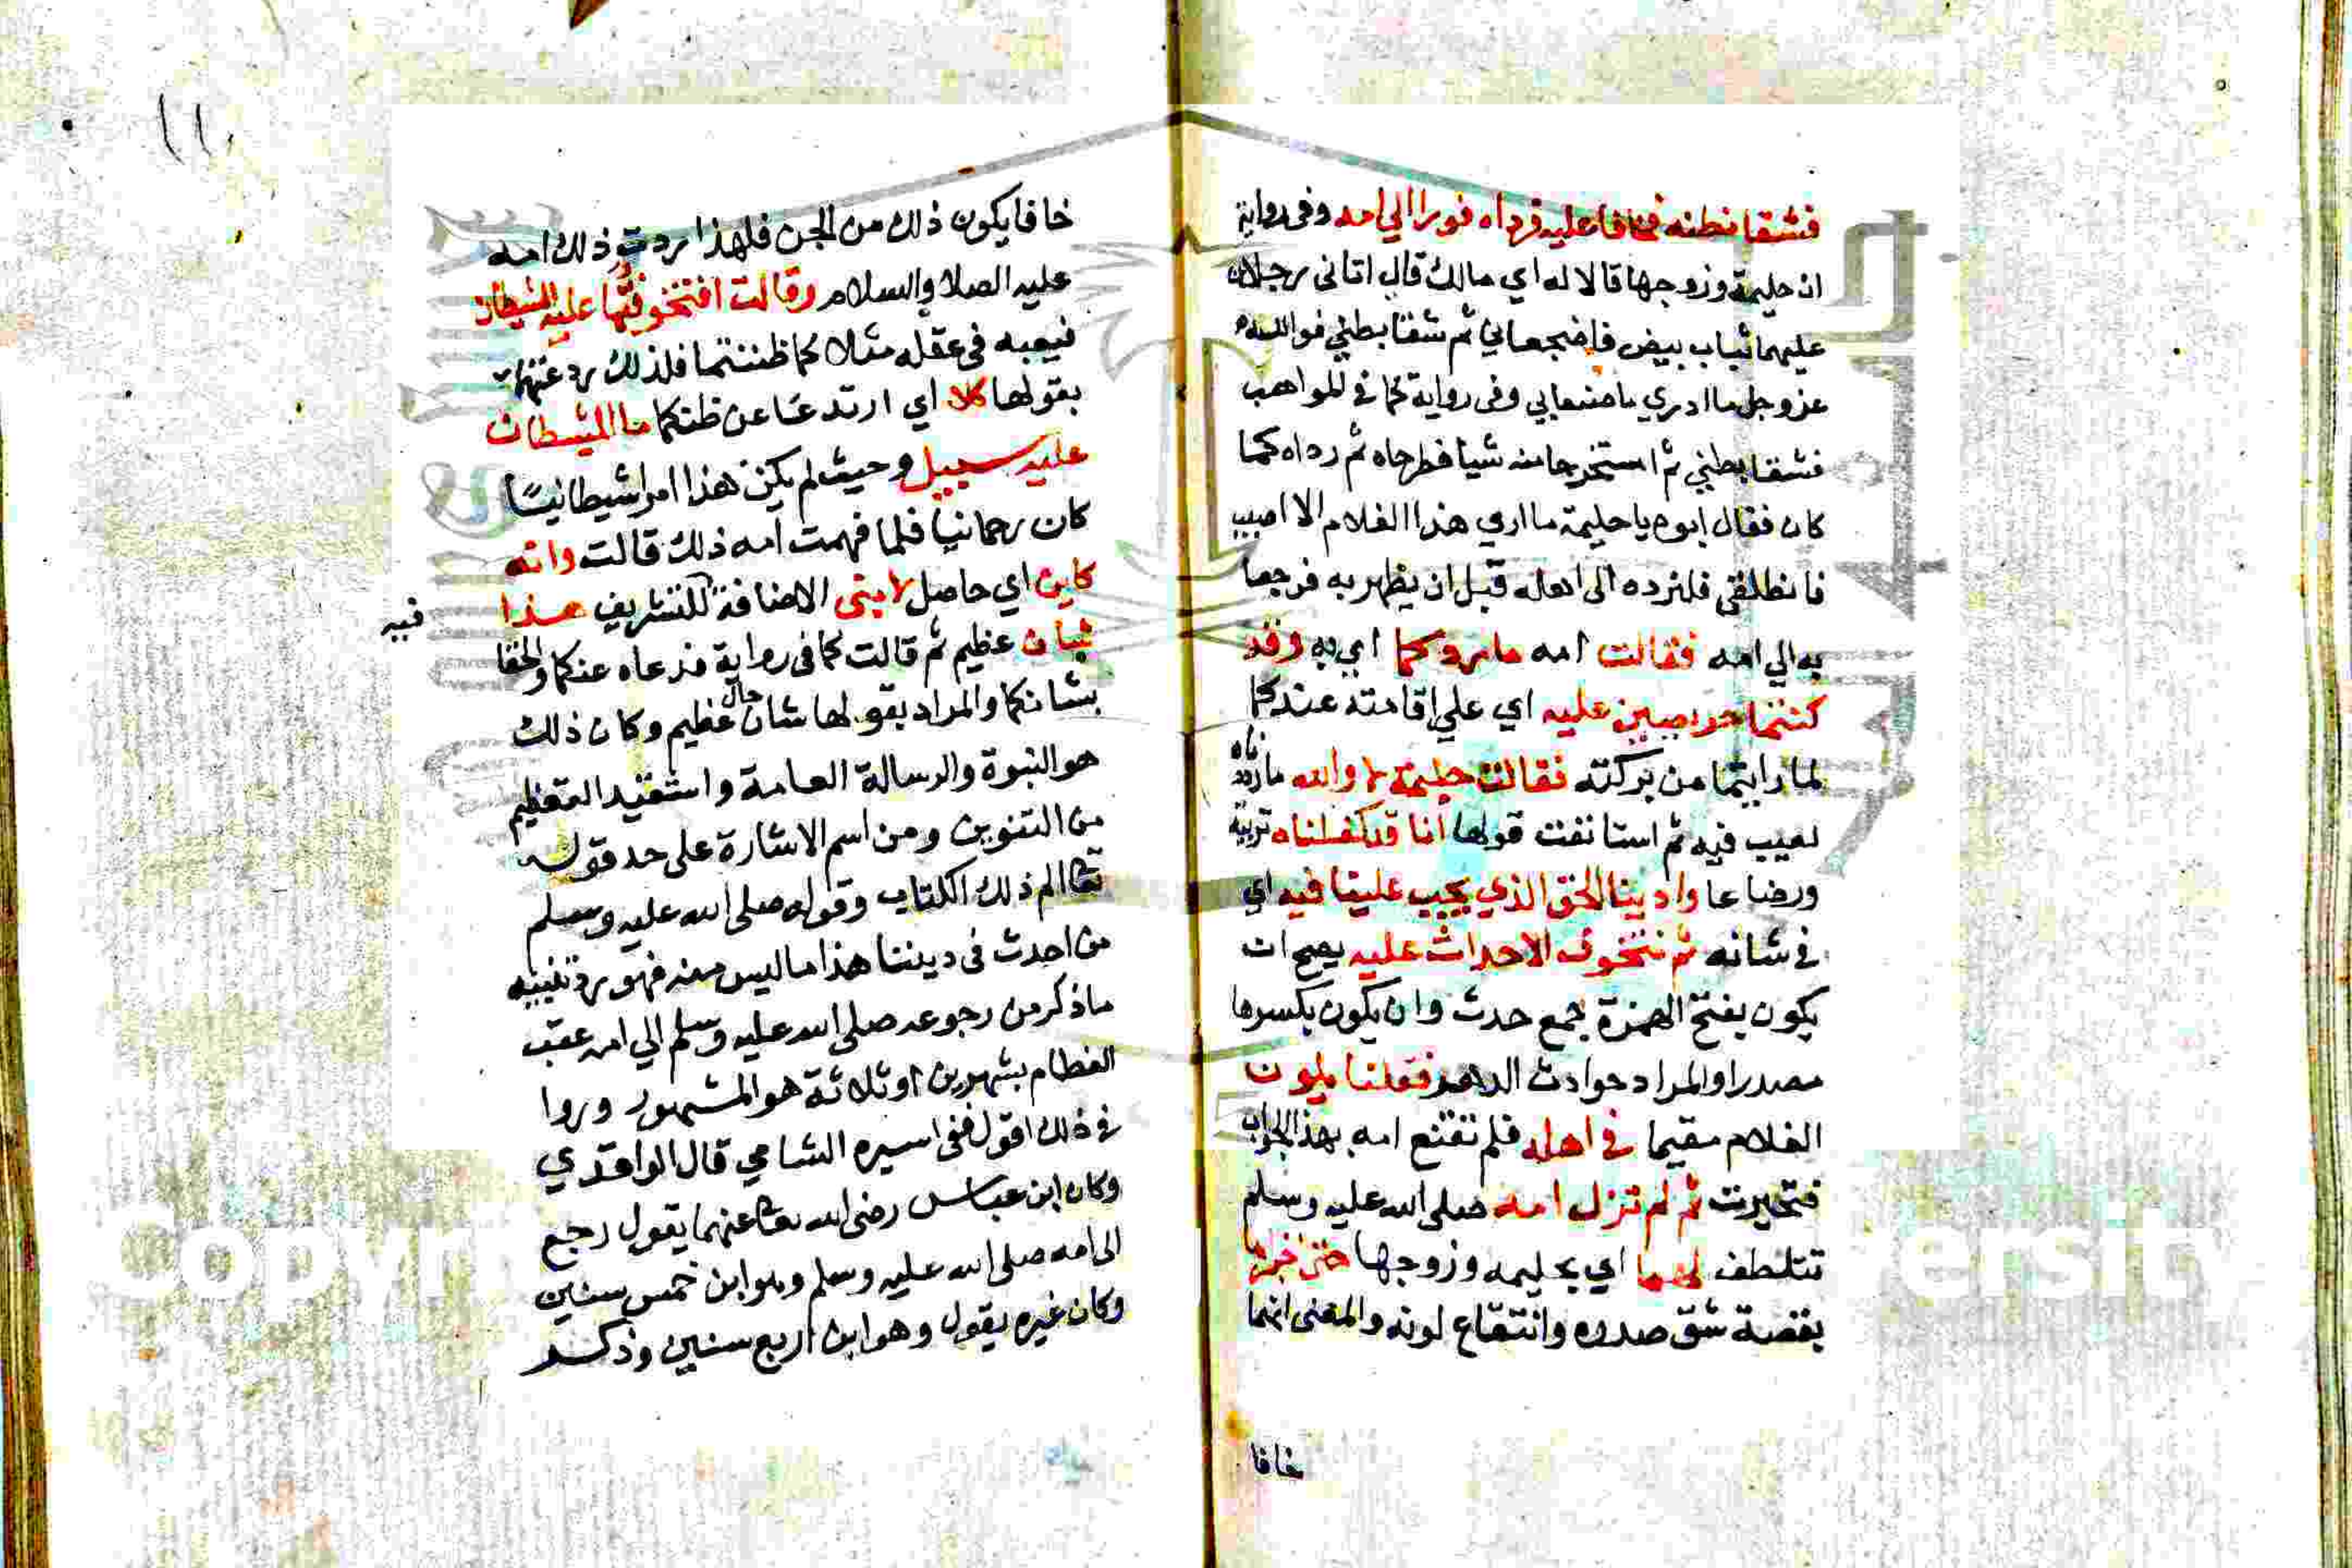 فشقا بطنه فخافا عليه فرداه فورا الي امه وفى رواية
ان حليمة وزوجها قالا له اي مالك قال اتانى رجلان
عليهما ثياب بيض فاضجعاني ثم شقا بطني فوالله
عز وجل ما ادري ما صنعا بي وفى رواية كما في المواهب
فشقا بطني ثم استخرجا منه شيا فطرحاه ثم رداه كما
كان فقال ابوه يا حليمة ما اري هذا الغلام الا اصيب
فانطلقى فلنرده الى اهله قبل ان يظهر به فرجعا
به الي امه فقالت امه ما ردكما اي به وقد
كنتما حريصين عليه اي علي اقامته عندكما
لما رايتما من بركته فقالت حليمة لا والله ما رددناه
لعيب فيه ثم استانفت قولها انا قد كفلناه تربية
ورضاعا وادينا الحق الذي يجب علينا فيه اي
في شانه ثم نتخوف الاحداث عليه يصح ان
يكون بفتح الهمزة جمع حدث وان يكون بكسرها
مصدرا والمراد حوادث الدهر فقلنا يكون
الغلام مقيما في اهله فلم تقنع امه بهذا الجواب
فتحيرت ثم لم تزل امه صلى الله عليه وسلم
تتلطف لهما اي بحليمه وزوجها حتى اخبراها
بقصة شق صدره وانتقاع لونه والمعنى انهما
خافا
١١٠
خافا يكون ذلك من الجن فلهذا ردت ذلك امه
عليه الصلا والسلام وقالت افتخوفتما عليه الشيطان
فيعبه فى عقله مثلا كما ظننتما فلذلك ردعتهما
بقولها كلا اي ارتدعا عن ظنكما ما للشيطان
عليه سبيل وحيث لم يكن هذا امرا شيطانيا
كان رحمانيا فلما فهمت امه ذلك قالت وانه
كاين اي حاصل لابنى الاضافة للتشريف هذا
شان عظيم ثم قالت كما فى رواية فدعاه عنكما والحقا
بشانكما والمراد بقولها شان حال عظيم وكان ذلك
هو النبوة والرسالة العامة واستفيد التعظيم
من التنوين ومن اسم الاشارة على حد قوله
تعالى الم ذلك الكتاب وقوله صلى الله عليه وسلم
من احدث فى ديننا هذا ما ليس منه فهو رد تنبيه
ما ذكر من رجوعه صلى الله عليه وسلم الي امه عقب
الفطام بشهرين او ثلاثة هو المشهور وروا
في ذلك اقول ففى اسيره الشامي قال الواقدي
وكان ابن عباس رضى الله تعالى عنهما يقول رجع
الى امه صلى الله عليه وسلم وهو ابن خمس سنين
وكان غيره يقول وهو ابن اربع سنين وذكر
فيه